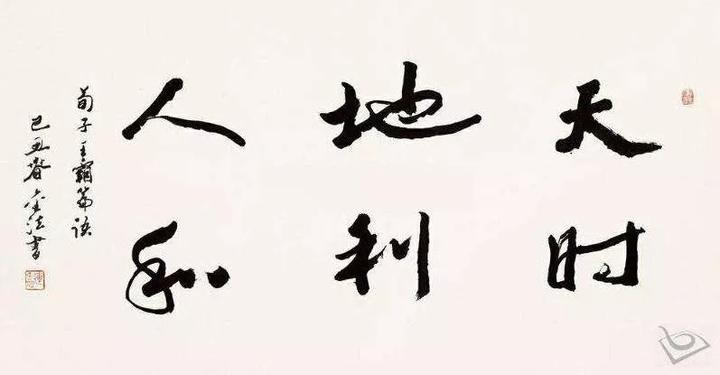 天时
地利
人和
荀子王霸篇语
己丑春金法书